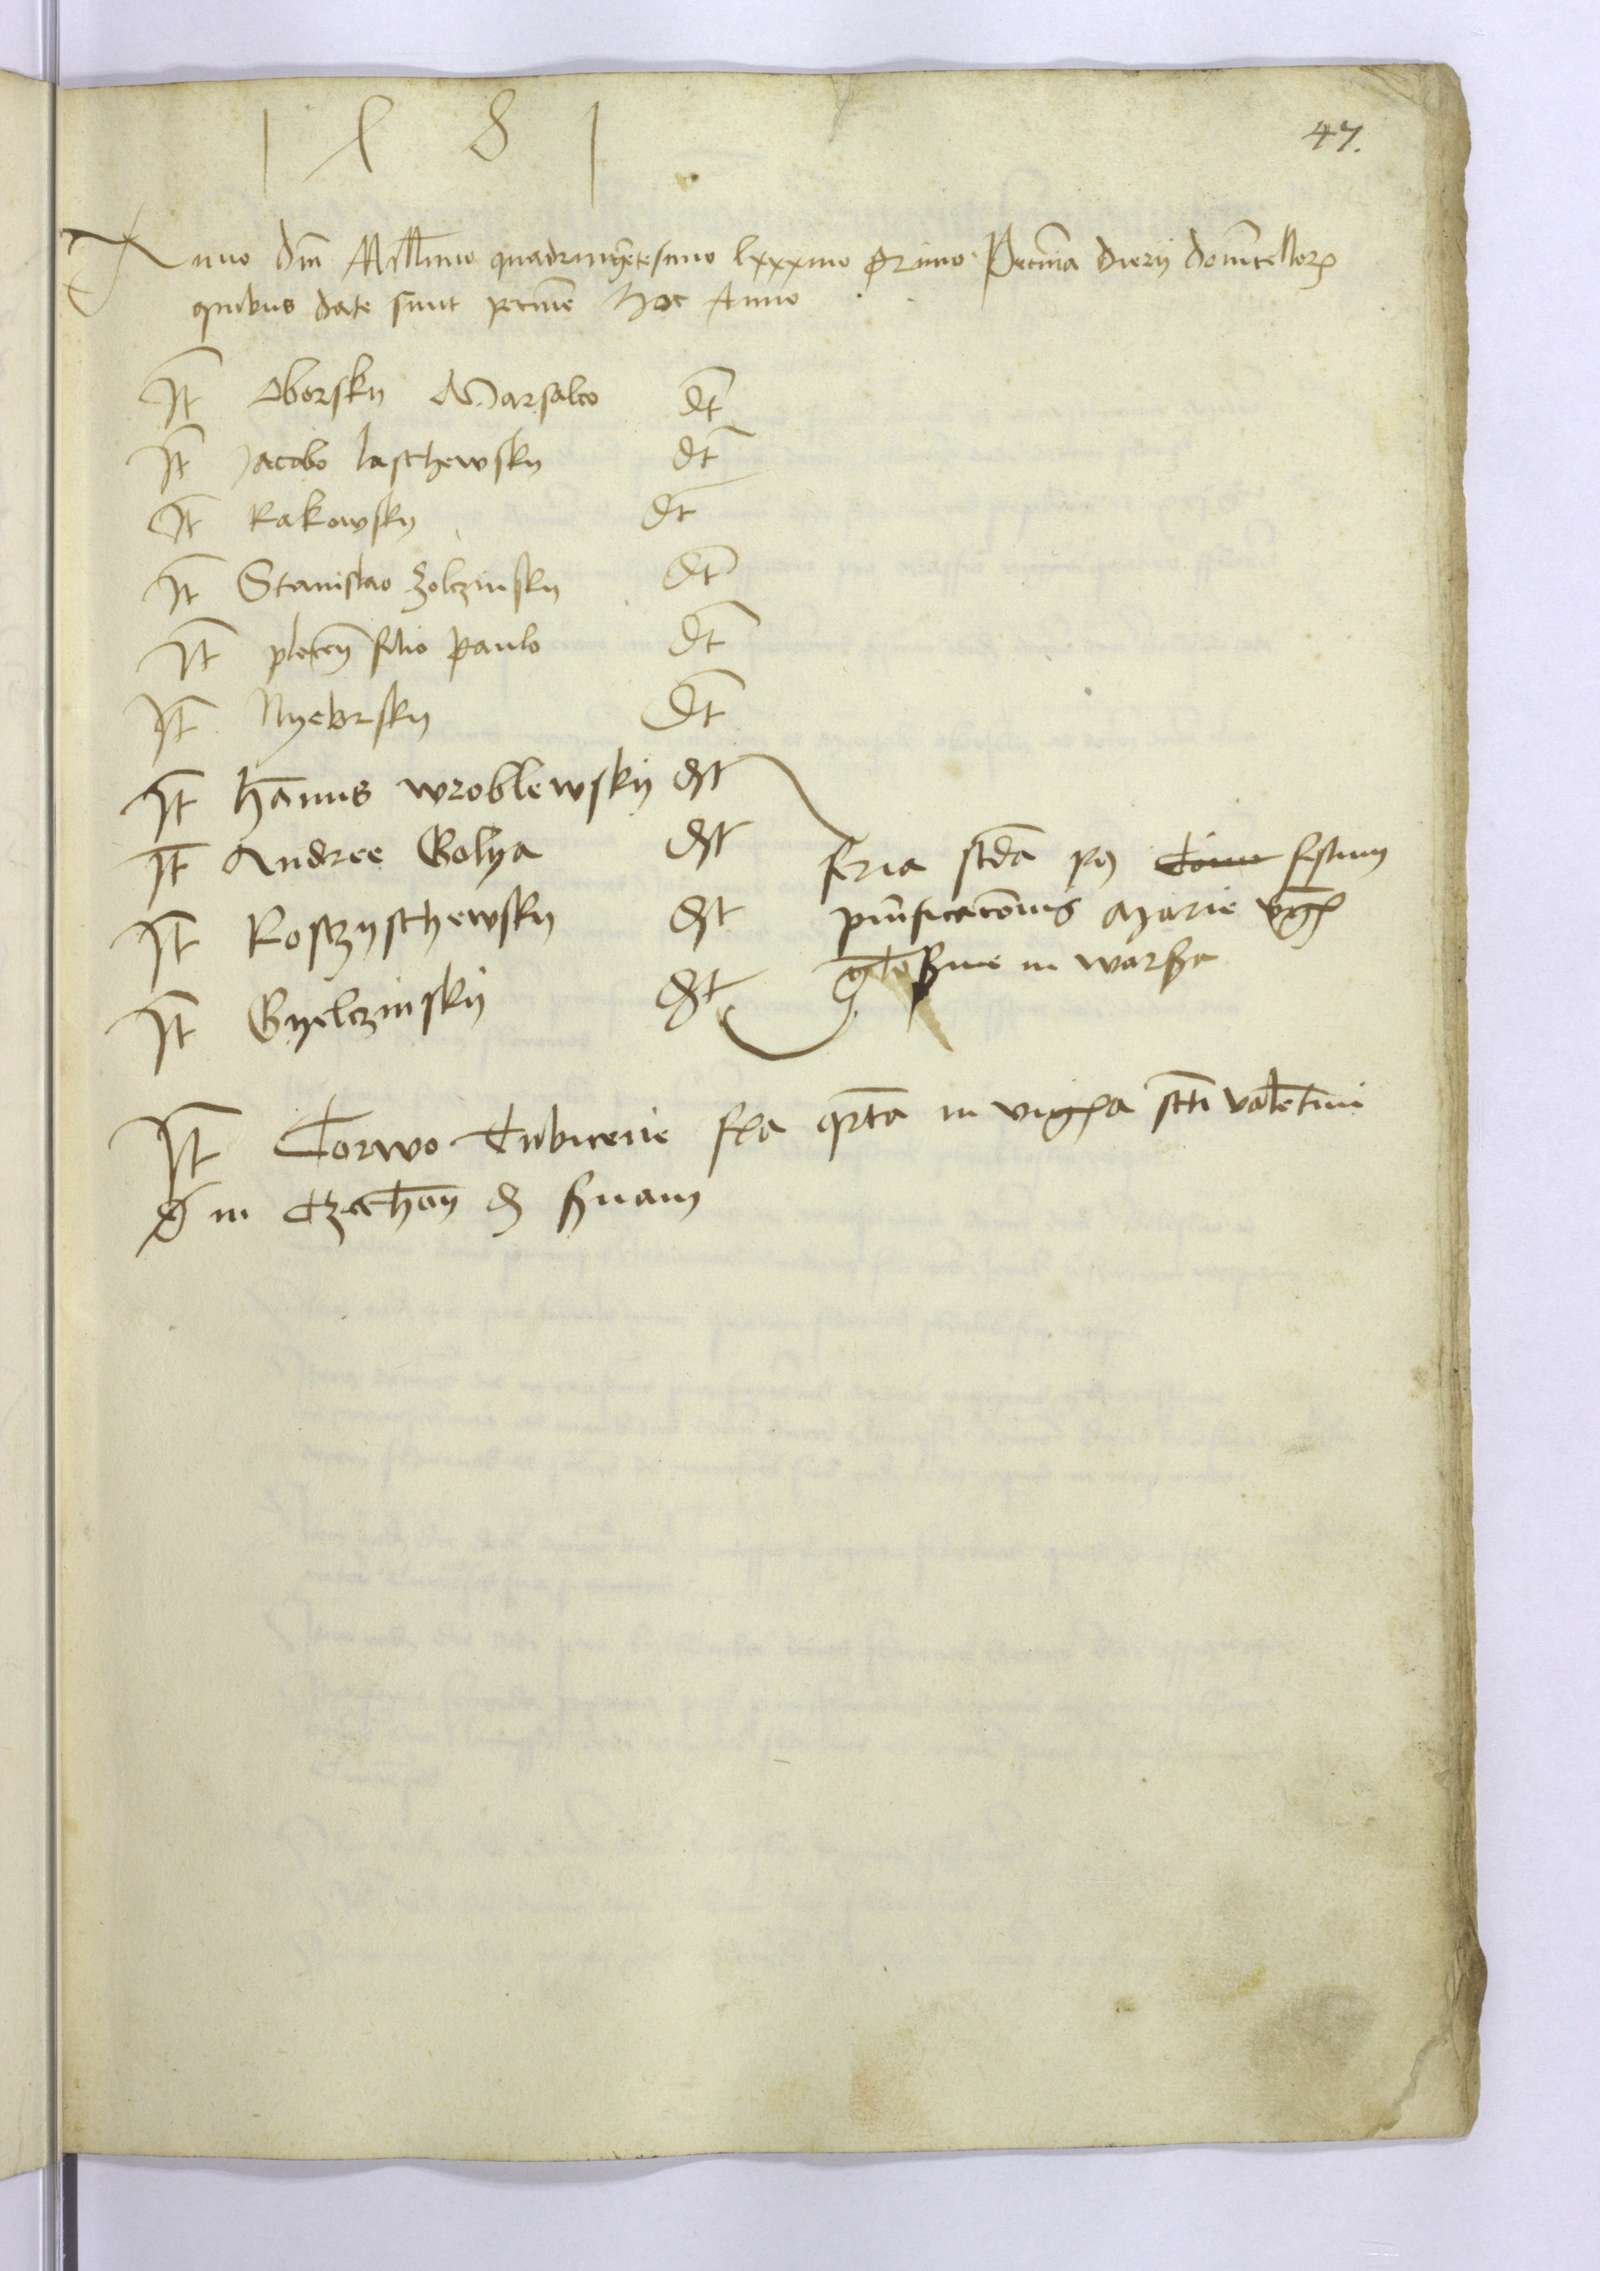 1 4 8 1
47.
Anno dm̄ Millimo quadringētesimo lxxxmo primo Pecunia dicti domicelloꝝ
quibus date sunt pecunie hoc Anno
It Oborsky Marsalco dt
It Jacobo laschewsky dt
It Rakowsky dt
It Stanislao Zolczinsky dt
It filio Paulo dt
It Nyeborsky dt
It hānus wroblewskÿ dt
It Andree Golya dt
It Rosczyschewsky dt
It Gyelczinskÿ dt
feria scda pꝰ festum
purificacōnis Marie vgꝭ
in warss
It Corwo Tubicene fa qrta in vigꝭa scti valētini
in Czechan